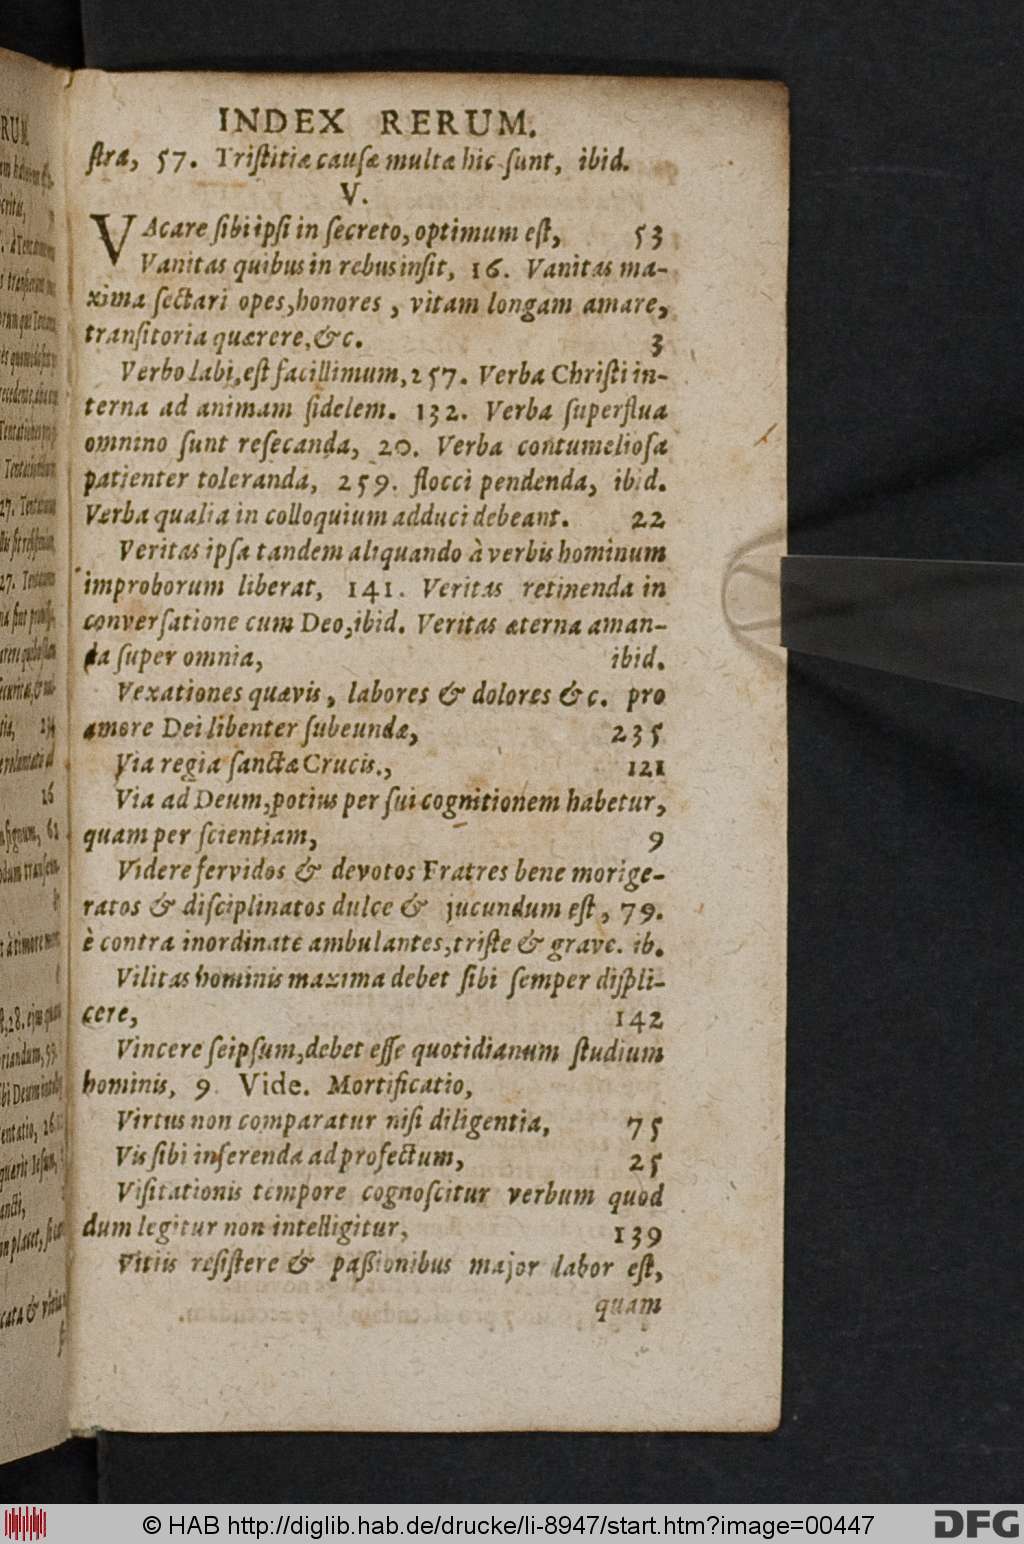 INDEX RERUM.
ſtra, 57. Triſtitiæ cauſæ multæ hic ſunt, ibid.
V.
VAcare ſibi ipſi in ſecreto, optimum eſt, 53
Vanitas quibus in rebus inſit, 16. Vanitas ma-
xima ſectari opes, honores, vitam longam amare,
tranſitoria quærere, &c. 3
Verbo labi, eſt facillimum, 257. Verba Chriſti in-
terna ad animam fidelem. 132. Verba ſuperflua
omnino ſunt reſecanda, 20. Verba contumelioſa
patienter toleranda, 259. flocci pendenda, ibid.
Verba qualia in colloquium adduci debeant. 22
Veritas ipſa tandem aliquando à verbis hominum
improborum liberat, 141. Veritas retinenda in
converſatione cum Deo, ibid. Veritas æterna aman-
da ſuper omnia, ibid.
Vexationes quævis, labores & dolores &c. pro
amore Dei libenter ſubeundæ, 235
Via regia ſanctæ Crucis., 121
Via ad Deum, potius per ſui cognitionem habetur,
quam per ſcientiam, 9
Videre fervidos & devotos Fratres bene morige-
ratos & diſciplinatos dulce & jucundum eſt, 79.
è contra inordinate ambulantes, triſte & grave. ib.
Vilitas hominis maxima debet ſibi ſemper diſpli-
cere, 142
Vincere ſeipſum, debet eſſe quotidianum ſtudium
hominis, 9 Vide. Mortificatio,
Virtus non comparatur niſi diligentia, 75
Vis ſibi inferenda ad profectum, 25
Viſitationis tempore cognoſcitur verbum quod
dum legitur non intelligitur, 139
Vitiis reſiſtere & paſſionibus major labor eſt,
quam
© HAB http://diglib.hab.de/drucke/li-8947/start.htm?image=00447
DFG